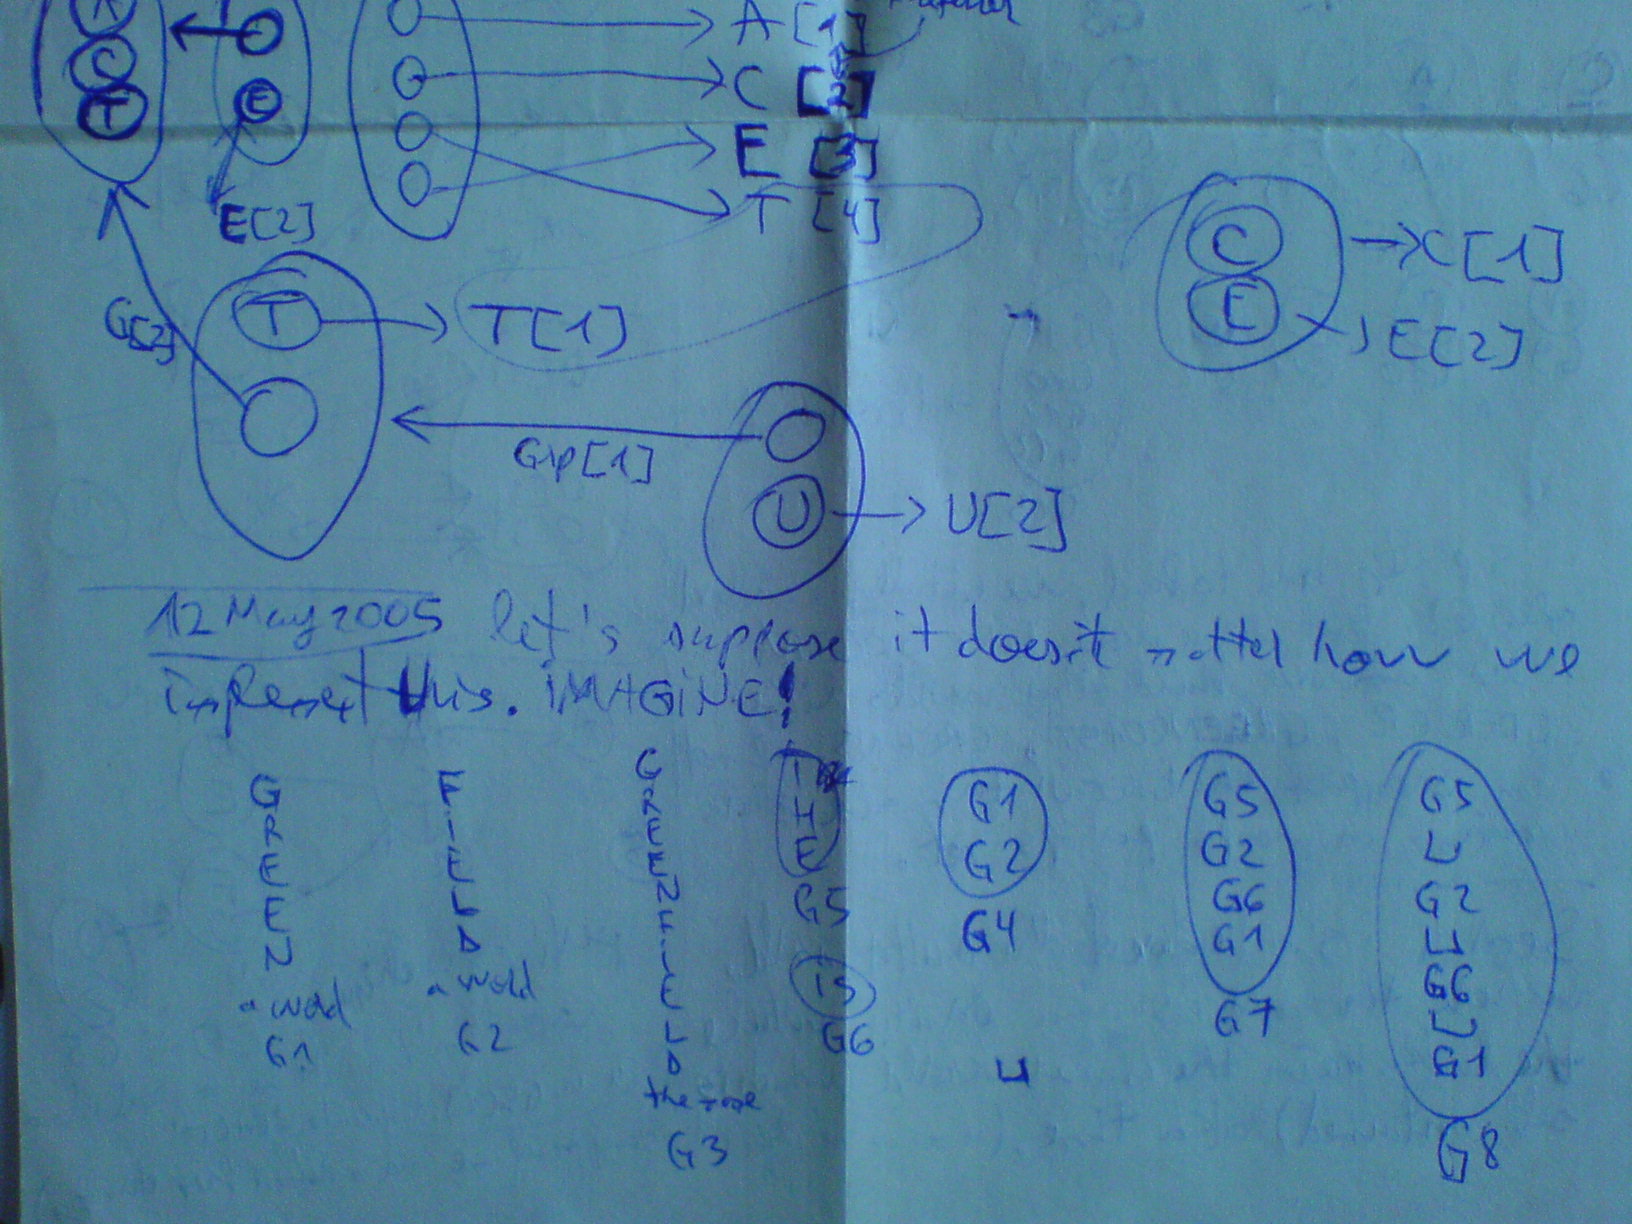 A A [1]
C C [2]
T E E [3]
E[2] T [4]
C → C[1]
E → E[2]
G[2] T → T[1]
Grp[1]
U → U[2]
12 May 2005 let's suppose it doesn't matter how we
implement this. IMAGINE!
GREEN
a word
G1
FIELD
a word
G2
GREENFIELD
G3
THE
G5
IS
G6
G1
G2
G4
G5
G2
G6
G1
G7
G5
␣
G2
␣
G6
␣
G1
G8
␣